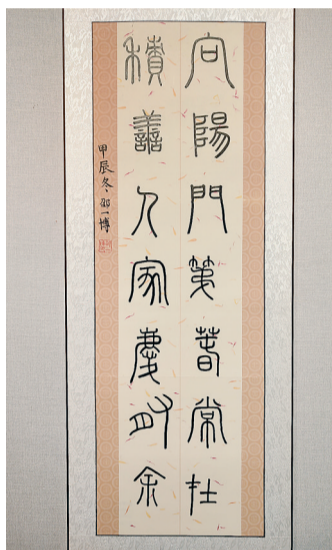 向陽門第春常在
積善人家慶有余
甲辰冬 邵一博